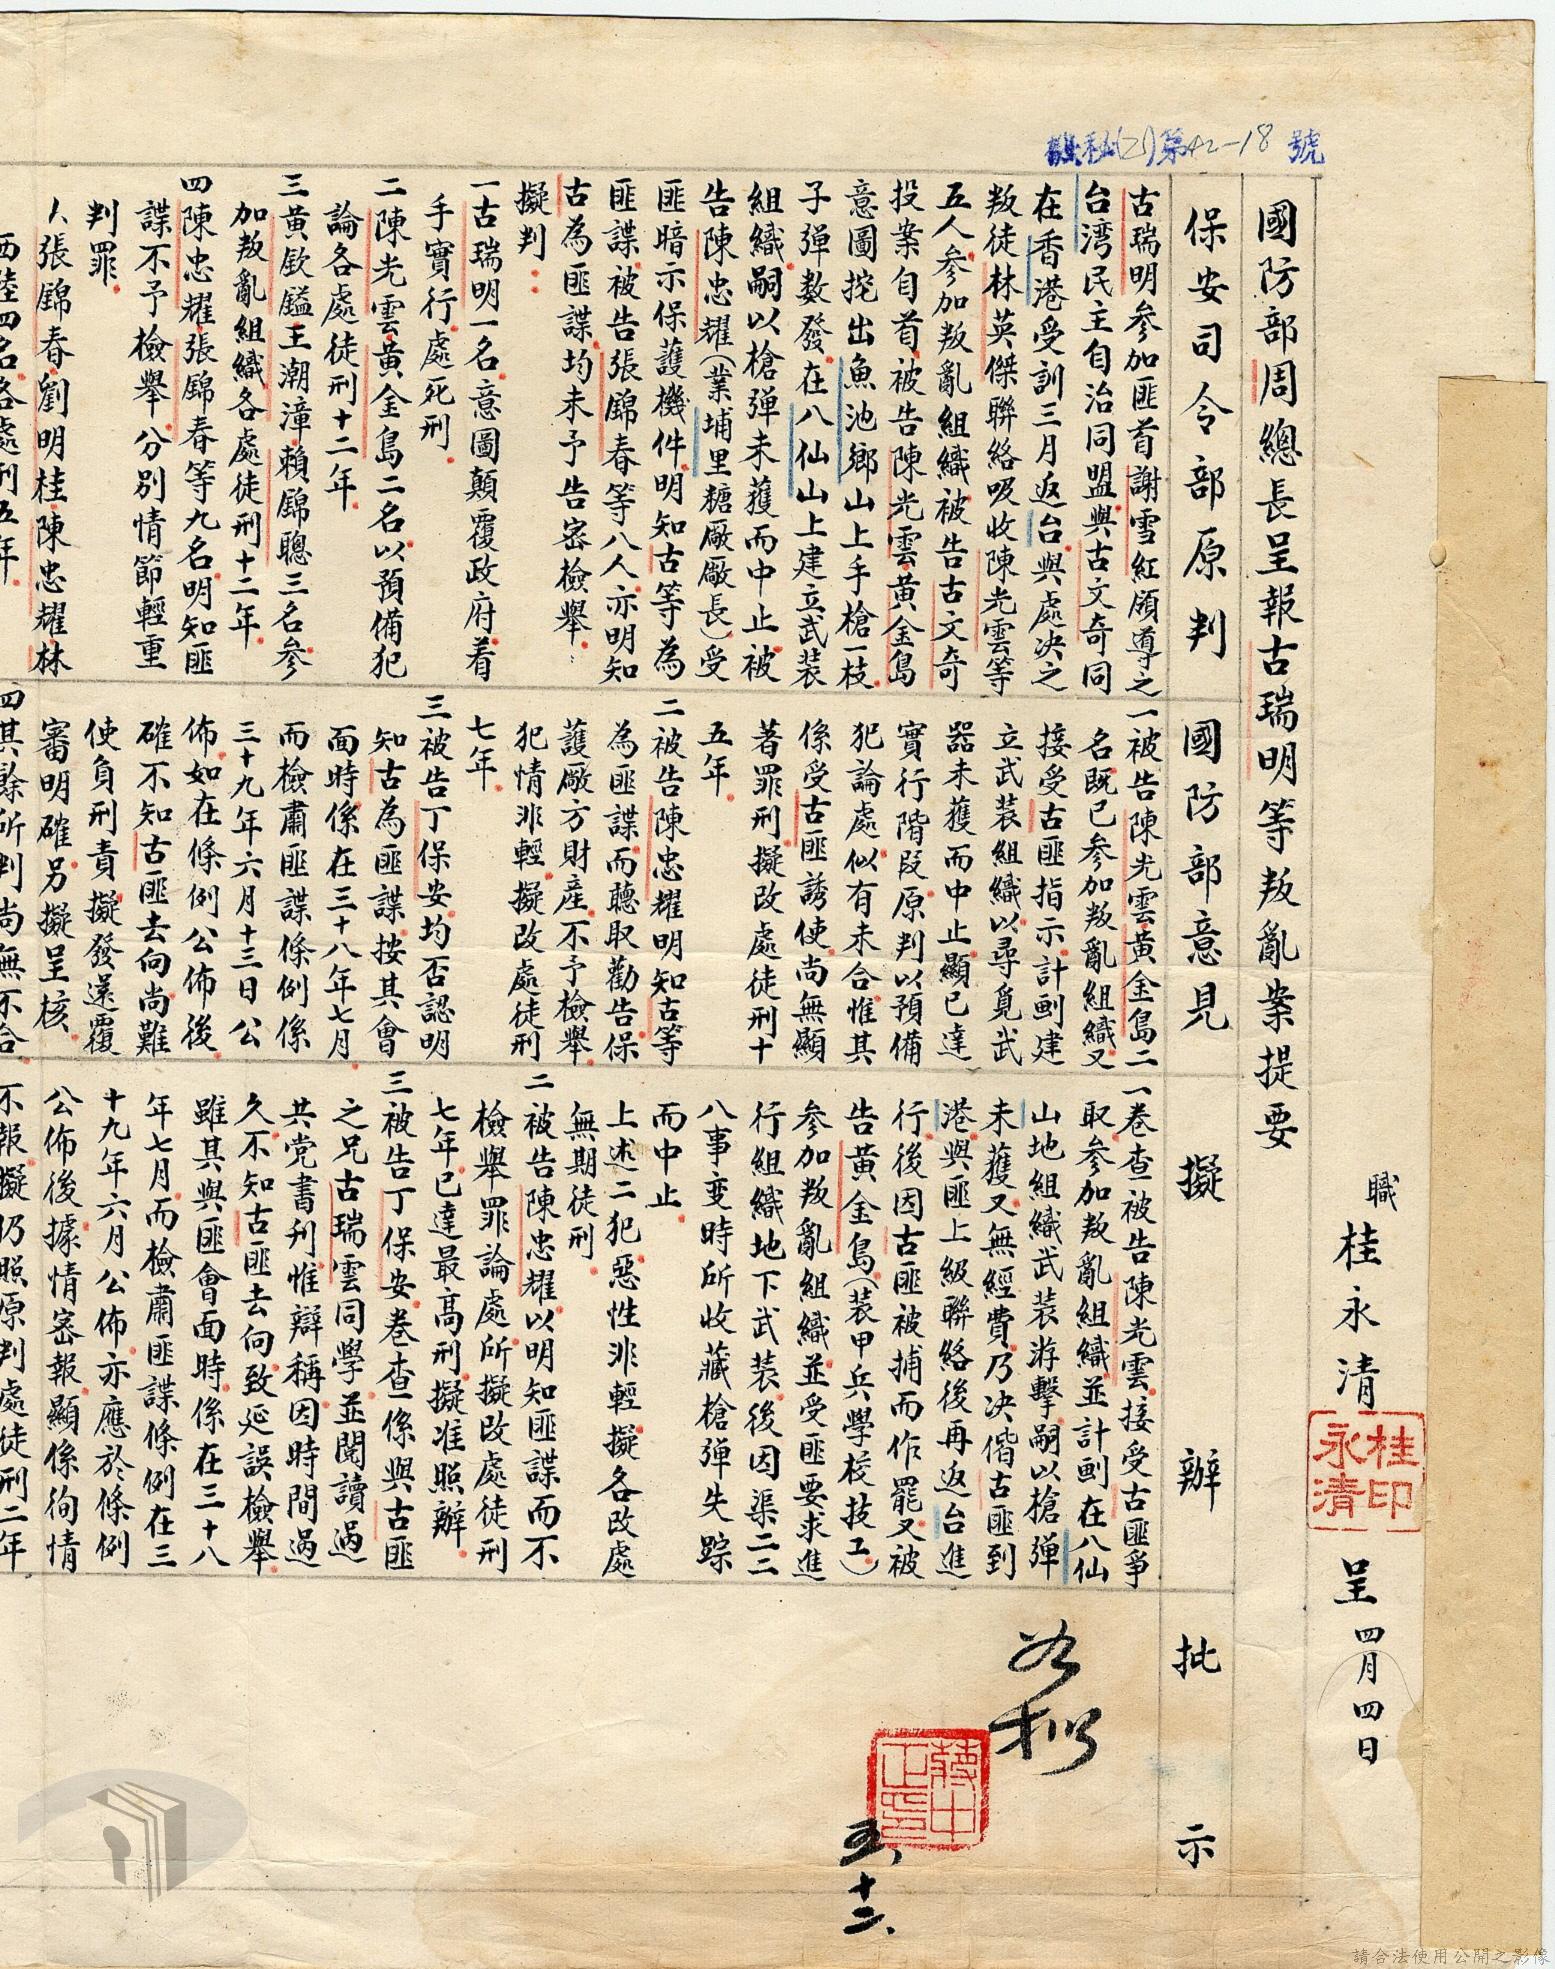 機秘(乙)第42-18號
職 桂永清 呈 四月四日
桂永清印
國防部周總長呈報古瑞明等叛亂案提要
保安司令部原判
國防部意見
擬辦
批示
古瑞明參加匪首謝雪紅領導之
台湾民主自治同盟與古文奇同
在香港受訓三月返台與處決之
叛徒林英傑聯絡吸收陳光雲等
五人參加叛亂組織被告古文奇
投案自首被告陳光雲黃金島
意圖挖出魚池鄉山上手槍一枝
子彈数發在八仙山上建立武裝
組織嗣以槍彈未獲而中止被
告陳忠耀(業埔里糖廠廠長)受
匪暗示保護機件明知古等為
匪諜被告張錦春等八人亦明知
古為匪諜均未予告密檢舉
擬判：
一古瑞明一名意圖顛覆政府着
手實行處死刑
二陳光雲黃金島二名以預備犯
論各處徒刑十二年
三黃欽鎰王潮漳賴錦聰三名參
加叛亂組織各處徒刑十二年
四陳忠耀張錦春等九名明知匪
諜不予檢舉分別情節輕重
判罪
人張錦春劉明桂陳忠耀林
西陸四名各處刑五年
一被告陳光雲黃金島二
名既已參加叛亂組織又
接受古匪指示計劃建
立武裝組織以尋覓武
器未獲而中止顯已達
實行階段原判以預備
犯論處似有未合惟其
係受古匪誘使尚無顯
著罪刑擬改處徒刑十
五年
二被告陳忠耀明知古等
為匪諜而聽取勸告保
護廠方財産不予檢舉
犯情非輕擬改處徒刑
七年
三被告丁保安均否認明
知古為匪諜按其會
面時係在三十八年七月
而檢肅匪諜條例係
三十九年六月十三日公
佈如在條例公佈後
確不知古匪去向尚難
使負刑責擬發還覆
審明確另擬呈核
四其餘所判尚無不合
一卷查被告陳光雲接受古匪爭
取參加叛亂組織並計劃在八仙
山地組織武装游擊嗣以槍彈
未獲又無經費乃決偕古匪到
港與匪上級聯絡後再返台進
行後因古匪被捕而作罷又被
告黃金島(装甲兵學校技工)
參加叛亂組織並受匪要求進
行組織地下武装後因渠二二
八事变時所收藏槍彈失踪
而中止
上述二犯惡性非輕擬各改處
無期徒刑
二被告陳忠耀以明知匪諜而不
檢舉罪論處所擬改處徒刑
七年已達最高刑擬准照辦
三被告丁保安卷查一係與古匪
之兄古瑞雲同學並閱讀過
共党書刊惟辯稱因時間過
久不知古匪去向致延誤檢舉
雖其與匪會面時係在三十八
年七月而檢肅匪諜條例在三
十九年六月公佈亦應於條例
公佈後據情密報顯係徇情
不報擬仍照原判處徒刑二年
如擬
蔣中正印
五、十二、
請合法使用公開之影像